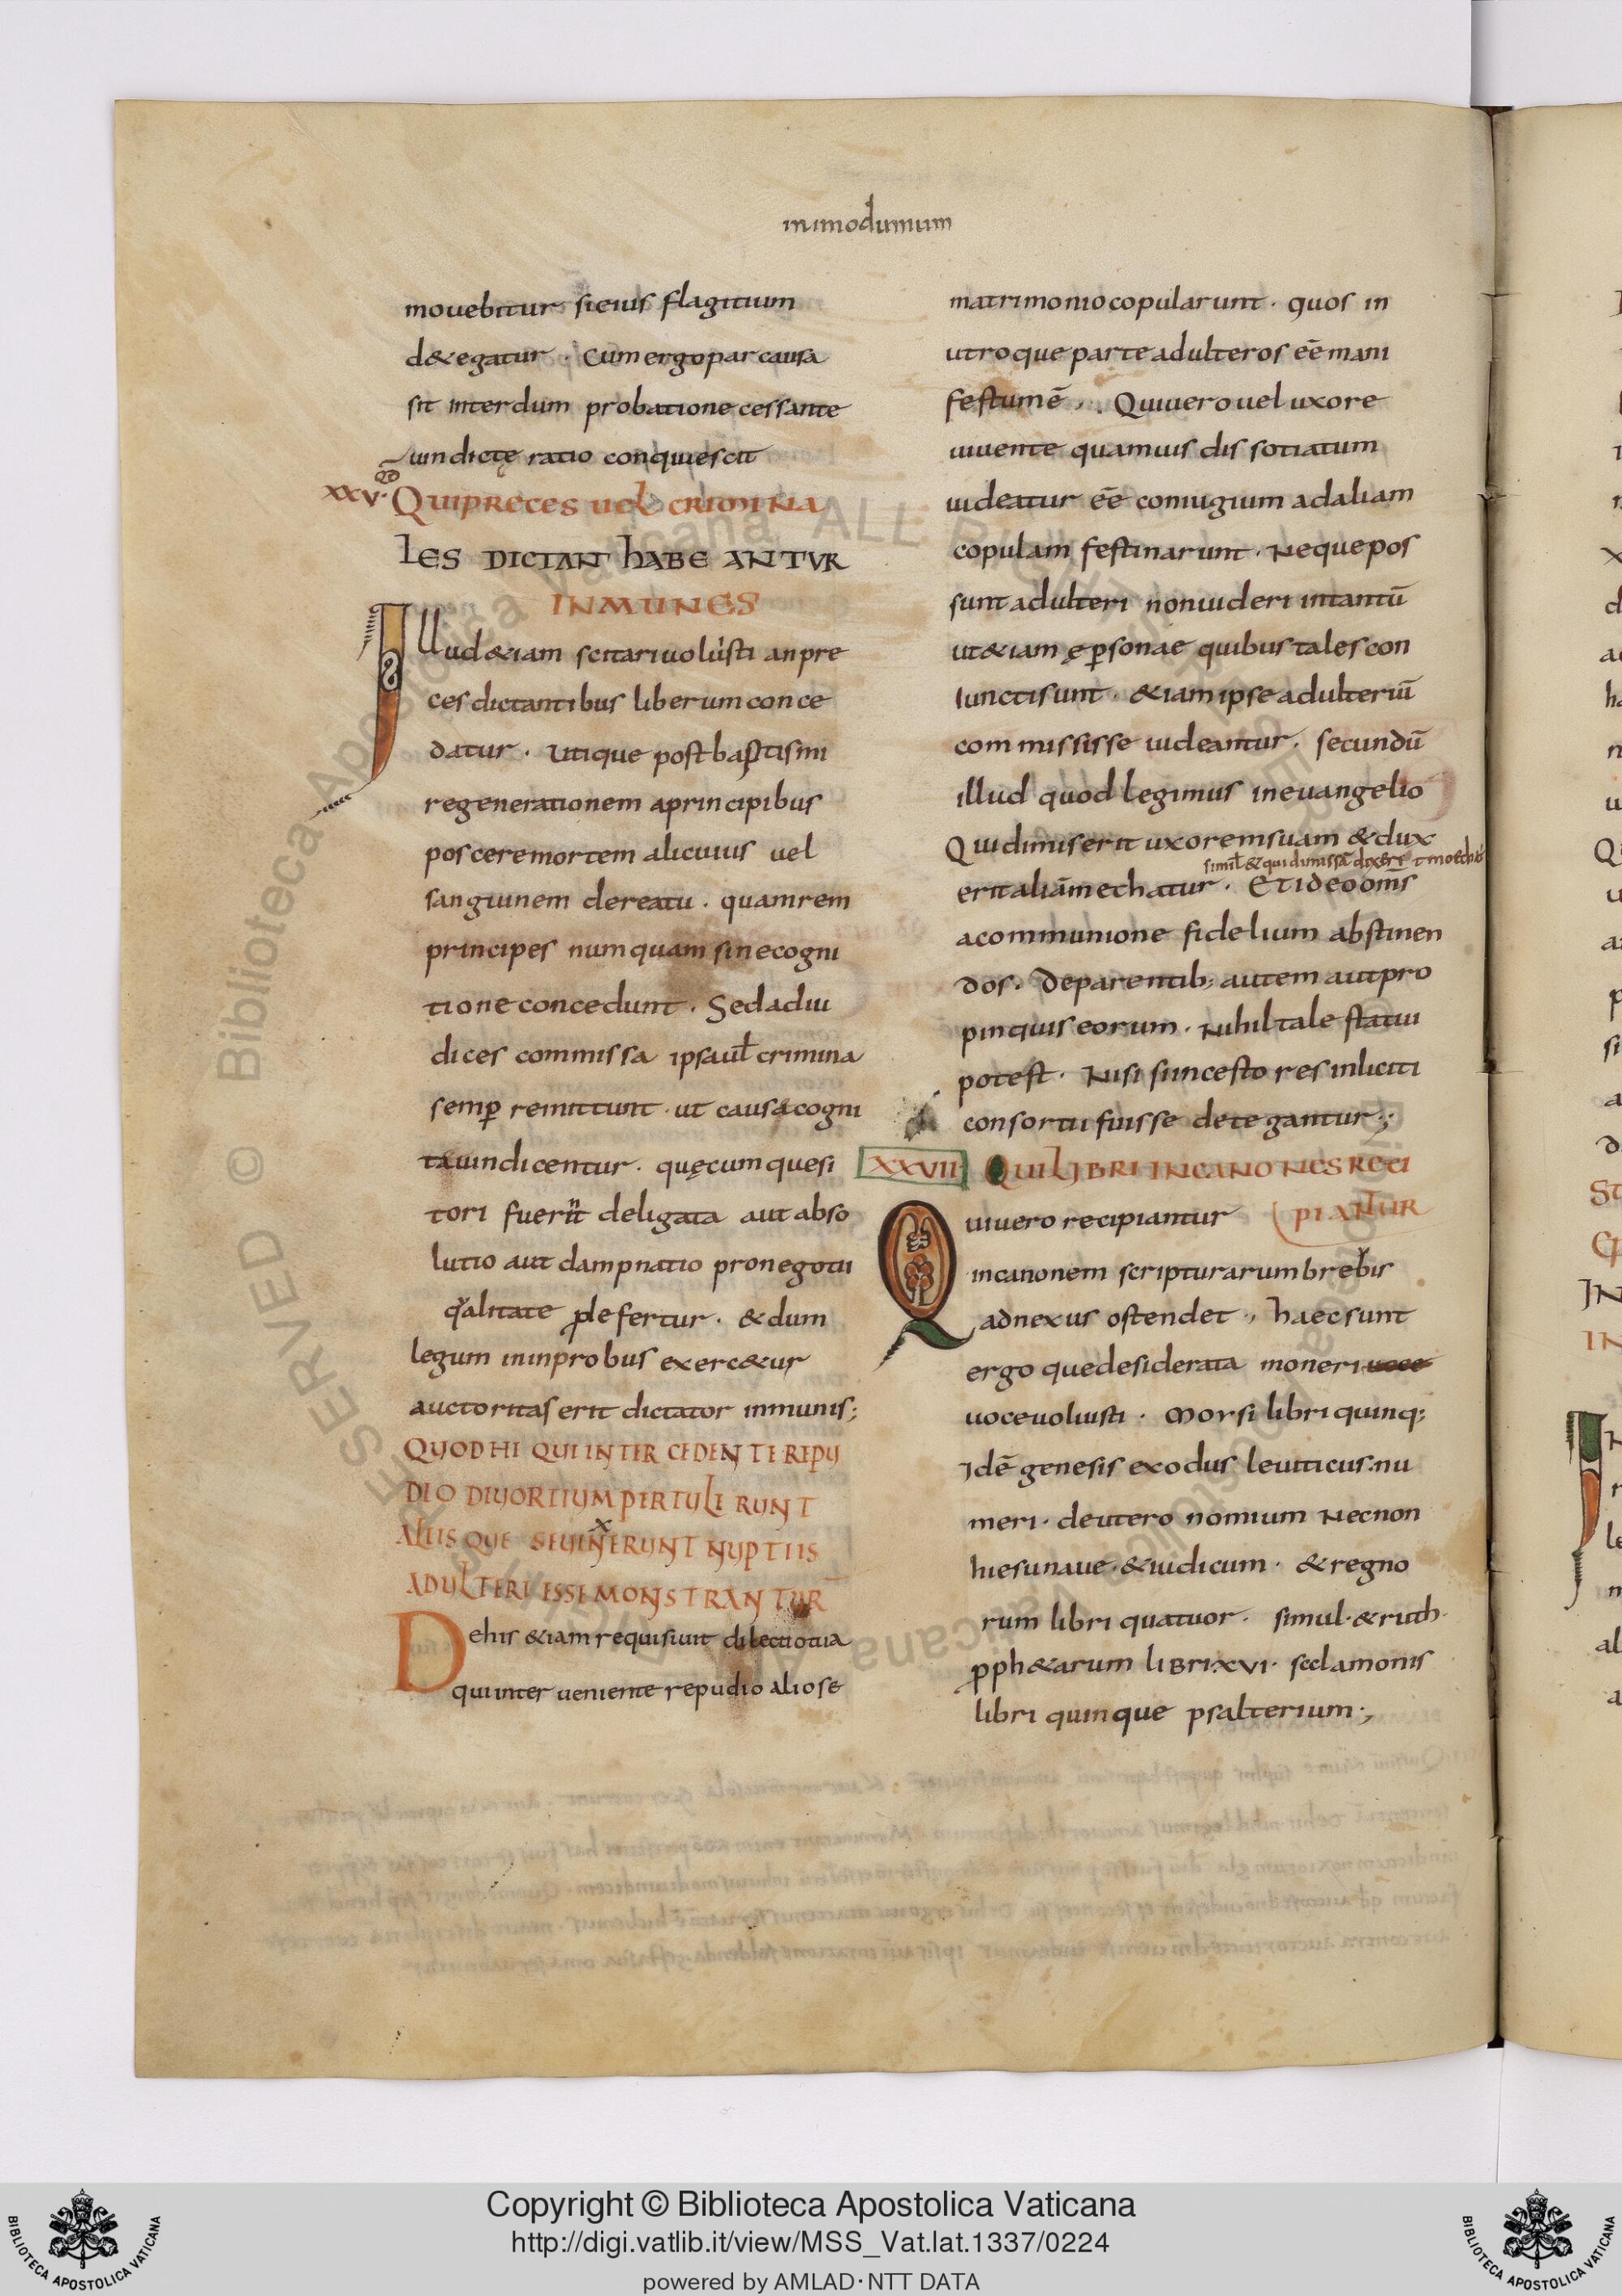 inimodumum
mouebitur si eius flagitium
d&egatur. Cum ergo par causa
sit interdum probatione cessante
uindictę ratio conquiescit
XXV. QUI PRECES UEL CRIMINA
LES DICTANT HABEANTUR
INMUNES
Illud &iam scitari uoluisti an pre
ces dictantibus liberum conce
datur. utique post baptismi
regenerationem a principibus
poscere mortem alicuius uel
sanguinem de reatu. quam rem
principes numquam sine cogni
tione concedunt. Sed ad iu
dices commissa ipsa ut̄ crimina
semꝑ remittunt. ut causa cogni
ta uindicentur. quęcum quesi
tori fuerit deligata aut abso
lutio aut dampnatio pro negotii
qualitate ꝓlefertur. & dum
legum in inprobus exerc&ur
auctoritas erit dictator inmunis;
QUOD HI QUI INTERCEDENTE REPU
DIO DIUORTIUM PERTULERUNT
ALIISQUE SE UINXERUNT NUPTIIS
ADULTERI ESSE MONSTRANTUR
De his &iam requisiuit dilectio tua
qui inter ueniente repudio alio se
matrimonio copularunt. quos in
utroque parte adulteros eē mani
festum ē. Qui uero uel uxore
uiuente quamuis dissotiatum
uideatur eē coniugium ad aliam
copulam festinarunt. Neque pos
sunt adulteri non uideri intantū
ut &iam ę ꝑsonae quibus tales con
iuncti sunt. &iam ipse adulteriū
commississe uideantur. secundū
illud quod legimus in euangelio
Qui dimiserit uxorem suam & dux
simil̄ & qui dimissā dixerit moechat
erit aliā mechatur. Et ideo om̄s
a communione fidelium abstinen
dos. De parentib; autem aut pro
pinquis eorum. Nihil tale statui
potest. Nisi si incestores inliciti
consortii fuisse detegantur;
XXVII QUI LIBRI IN CANONES RECI
PIANTUR
Qui uero recipiantur
in canonem scripturarum breuis
adnexus ostendet, haec sunt
ergo que desiderata moneri uoce
uoce uoluisti. Moysi libri quinq;
Idē genesis exodus leuiticus. nu
meri. deutero nomium Necnon
hiesu naue. & iudicum. & regno
rum libri quatuor. simul. & ruth.
ꝓph&arum LIBRI XVI. sc̄lamonis
libri quinque psalterium;
Copyright © Biblioteca Apostolica Vaticana
http://digi.vatlib.it/view/MSS_Vat.lat.1337/0224
powered by AMLAD·NTT DATA
BIBLIOTECA APOSTOLICA VATICANA
BIBLIOTECA APOSTOLICA VATICANA